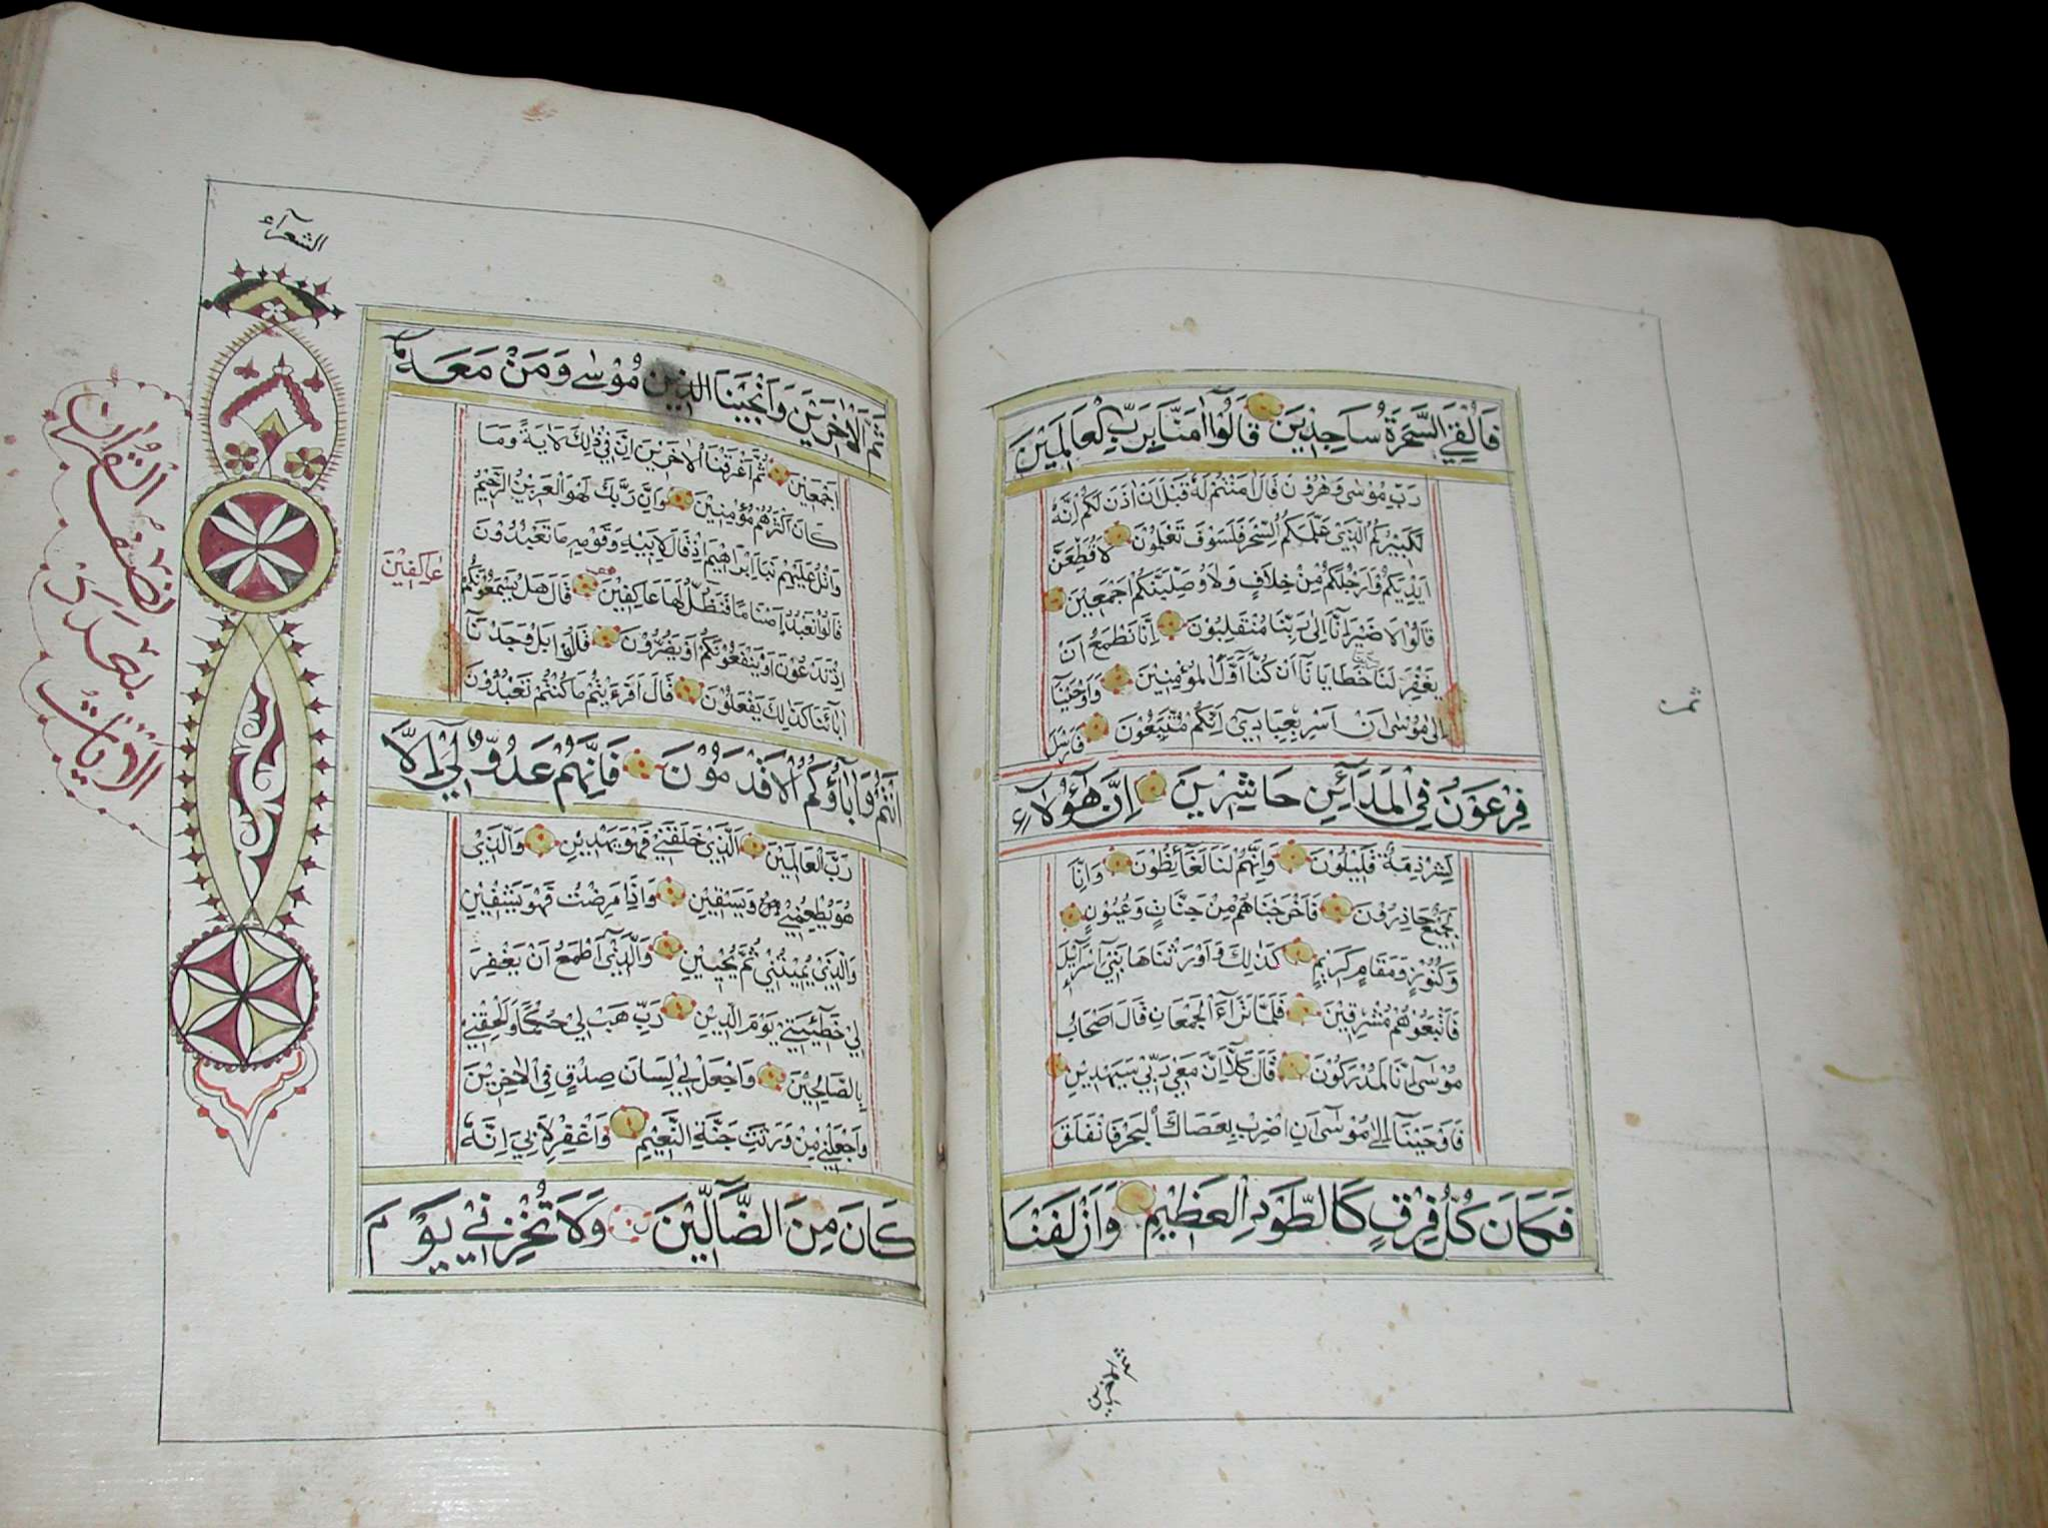 فَاُلْقِيَ السَّحَرَةُ سَاجِدِيْنَ قَالُوْٓا اٰمَنَّا بِرَبِّ الْعَالَمِيْنَ
رَبِّ مُوْسٰى وَهٰرُوْنَ قَالَ اٰمَنْتُمْ لَهٗ قَبْلَ اَنْ اٰذَنَ لَكُمْ اِنَّهٗ
لَكَبِيْرُكُمُ الَّذِيْ عَلَّمَكُمُ السِّحْرَ فَلَسَوْفَ تَعْلَمُوْنَ لَاُقَطِّعَنَّ
اَيْدِيَكُمْ وَاَرْجُلَكُمْ مِنْ خِلَافٍ وَلَاُوصَلِّبَنَّكُمْ اَجْمَعِيْنَ
قَالُوْا لَا ضَيْرَ اِنَّآ اِلٰى رَبِّنَا مُنْقَلِبُوْنَ اِنَّا نَطْمَعُ اَنْ
يَغْفِرَ لَنَا رَبُّنَا خَطَايَانَآ اَنْ كُنَّآ اَوَّلَ الْمُؤْمِنِيْنَ وَاَوْحَيْنَآ
اِلٰى مُوْسٰى اَنْ اَسْرِ بِعِبَادِيْٓ اِنَّكُمْ مُتَّبَعُوْنَ فَاَرْسَلَ
فِرْعَوْنُ فِي الْمَدَآئِنِ حَاشِرِيْنَ اِنَّ هٰٓؤُلَاۤءِ
لَشِرْذِمَةٌ قَلِيْلُوْنَ وَاِنَّهُمْ لَنَا لَغَآئِظُوْنَ وَاِنَّا
لَجَمِيْعٌ حَاذِرُوْنَ فَاَخْرَجْنَاهُمْ مِنْ جَنَّاتٍ وَعُيُوْنٍ
وَكُنُوْزٍ وَمَقَامٍ كَرِيْمٍ كَذٰلِكَ وَاَوْرَثْنَاهَا بَنِيْٓ اِسْرَآئِيْلَ
فَاَتْبَعُوْهُمْ مُشْرِقِيْنَ فَلَمَّا تَرَآءَ الْجَمْعَانِ قَالَ اَصْحَابُ
مُوْسٰٓى اِنَّا لَمُدْرَكُوْنَ قَالَ كَلَّآ اِنَّ مَعِيَ رَبِّيْ سَيَهْدِيْنِ
فَاَوْحَيْنَآ اِلٰى مُوْسٰٓى اَنِ اضْرِبْ بِعَصَاكَ الْبَحْرَ فَانْفَلَقَ
فَكَانَ كُلُّ فِرْقٍ كَالطَّوْدِ الْعَظِيْمِ وَاَزْلَفْنَا
ثمن
الشعرآء
ثَمَّ الْاٰخَرِيْنَ وَاَنْجَيْنَا الذين مُوْسٰى وَمَنْ مَعَهٗٓ
اَجْمَعِيْنَ ثُمَّ اَغْرَقْنَا الْاٰخَرِيْنَ اِنَّ فِيْ ذٰلِكَ لَاٰيَةً وَمَا
كَانَ اَكْثَرُهُمْ مُؤْمِنِيْنَ وَاِنَّ رَبَّكَ لَهُوَ الْعَزِيْزُ الرَّحِيْمُ
وَاتْلُ عَلَيْهِمْ نَبَاَ اِبْرَاهِيْمَ اِذْ قَالَ لِاَبِيْهِ وَقَوْمِهٖ مَا تَعْبُدُوْنَ
قَالُوْا نَعْبُدُ اَصْنَامًا فَنَظَلُّ لَهَا عَاكِفِيْنَ قَالَ هَلْ يَسْمَعُوْنَكُمْ
عَاكِفِيْنَ
اِذْ تَدْعُوْنَ اَوْ يَنْفَعُوْنَكُمْ اَوْ يَضُرُّوْنَ قَالُوْا بَلْ وَجَدْنَآ
اٰبَآئَنَا كَذٰلِكَ يَفْعَلُوْنَ قَالَ اَفَرَءَيْتُمْ مَا كُنْتُمْ تَعْبُدُوْنَ
اَنْتُمْ وَاٰبَآؤُكُمُ الْاَقْدَمُوْنَ فَاِنَّهُمْ عَدُوٌّ لِيْٓ اِلَّا
رَبَّ الْعَالَمِيْنَ الَّذِيْ خَلَقَنِيْ فَهُوَ يَهْدِيْنِ وَالَّذِيْ
هُوَ يُطْعِمُنِيْ وَيَسْقِيْنِ وَاِذَا مَرِضْتُ فَهُوَ يَشْفِيْنِ
وَالَّذِيْ يُمِيْتُنِيْ ثُمَّ يُحْيِيْنِ وَالَّذِيْٓ اَطْمَعُ اَنْ يَغْفِرَ
لِيْ خَطِٓيْئَتِيْ يَوْمَ الدِّيْنِ رَبِّ هَبْ لِيْ حُكْمًا وَاَلْحِقْنِيْ
بِالصَّالِحِيْنَ وَاجْعَلْ لِيْ لِسَانَ صِدْقٍ فِي الْاٰخِرِيْنَ
وَاجْعَلْنِيْ مِنْ وَرَثَةِ جَنَّةِ النَّعِيْمِ وَاغْفِرْ لِاَبِيْٓ اِنَّهٗ
كَانَ مِنَ الضَّآلِّيْنَ وَلَا تُخْزِنِيْ يَوْمَ
نصف القران